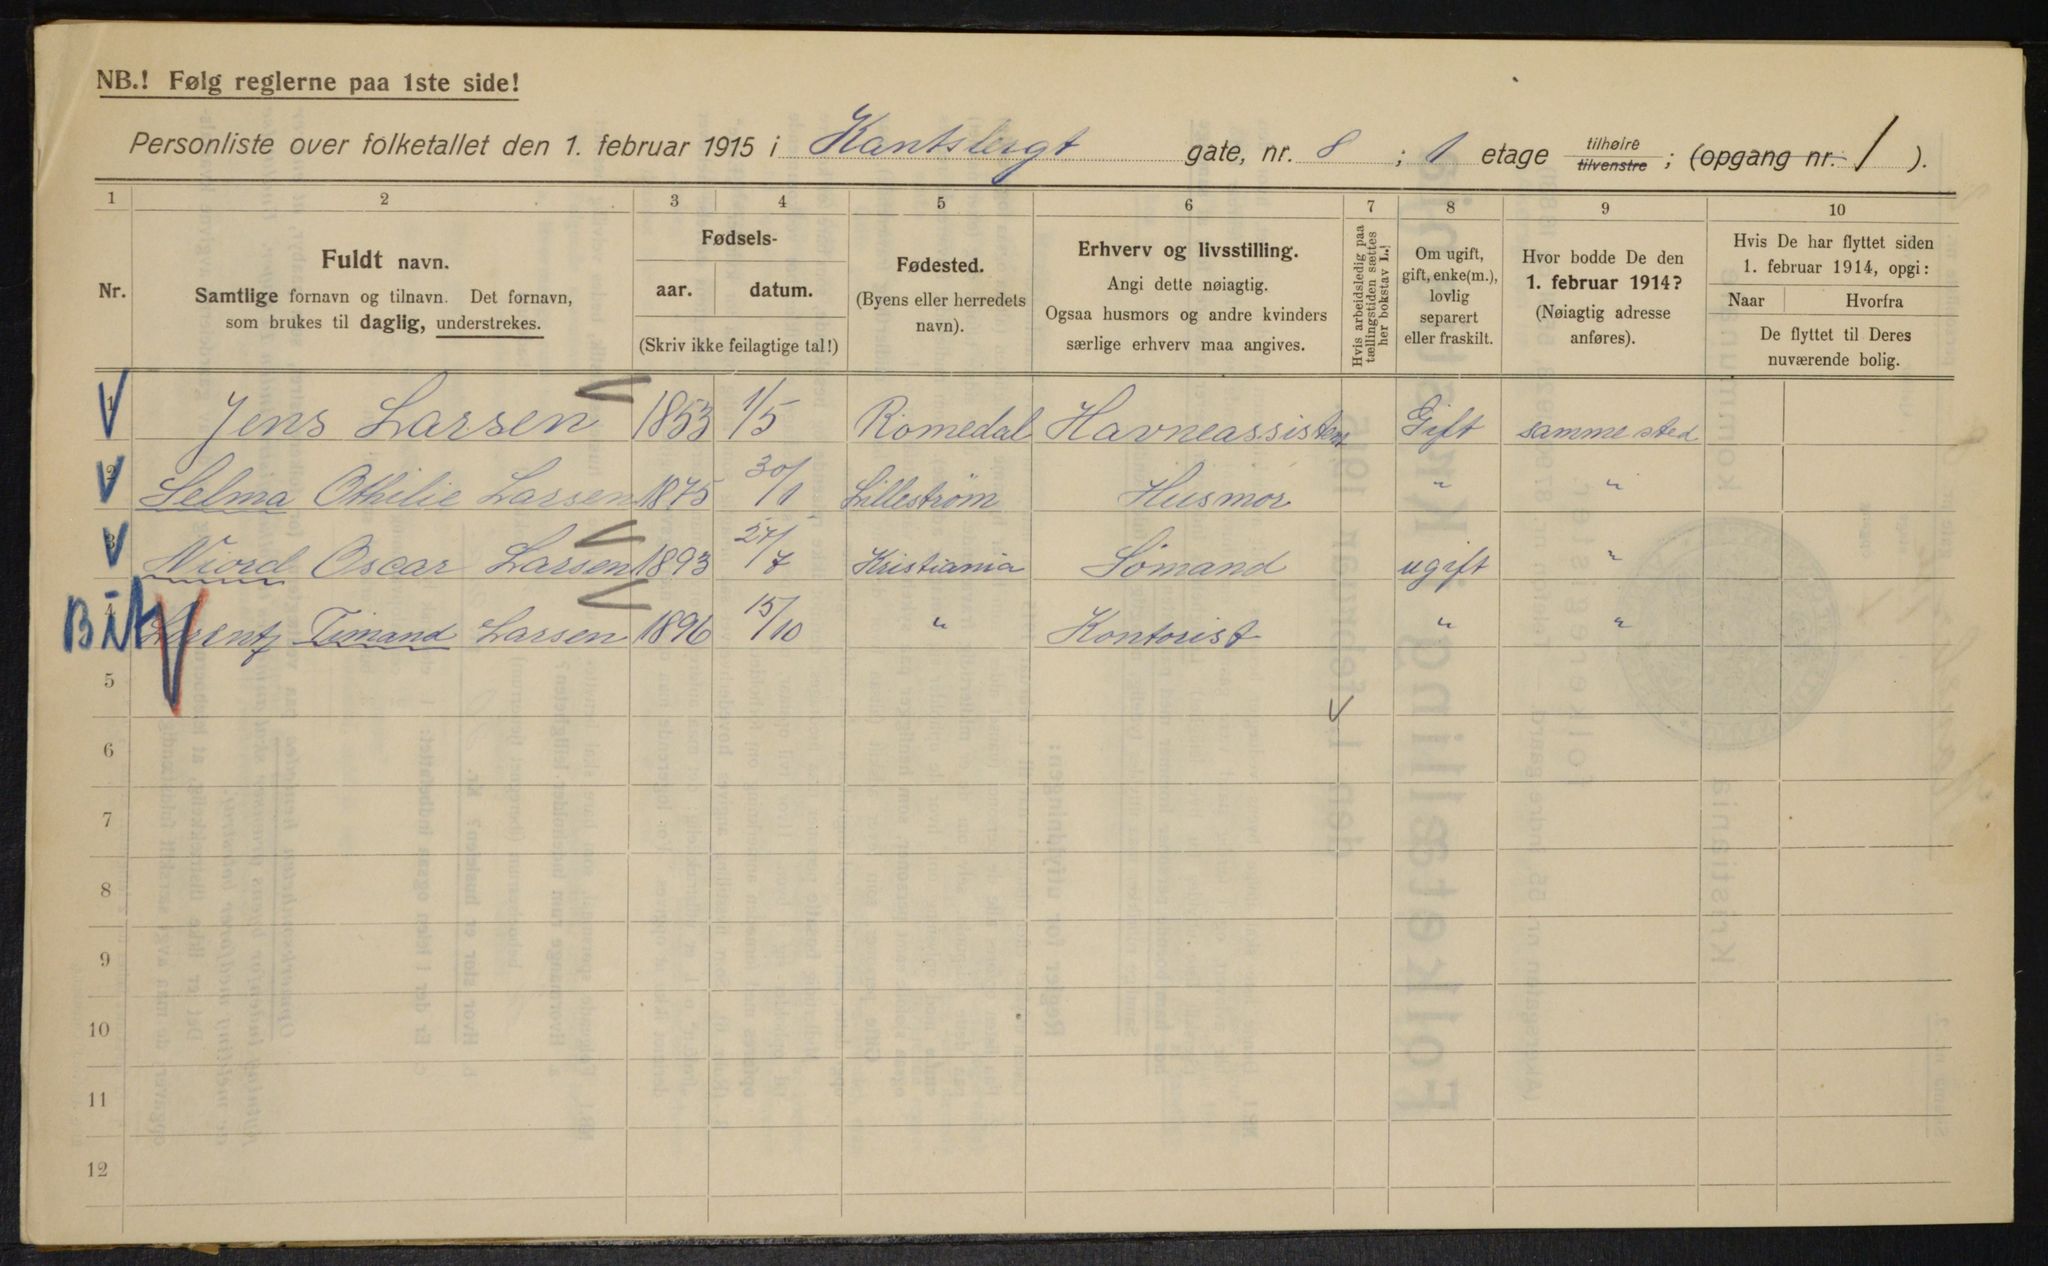 NB.! Følg reglerne paa 1ste side!
Personliste over folketallet den 1. februar 1915 i Kantslergt gate, nr. 8 ; 1 etage tilhøire tilvenstre ; (opgang nr. 1 ).
1 2 3 4 5 6 7 8 9 10
Nr.
Fuldt navn.
Samtlige fornavn og tilnavn. Det fornavn,
som brukes til daglig, understrekes.
Fødsels-
aar. datum.
(Skriv ikke feilagtige tal!)
Fødested.
(Byens eller herredets
navn).
Erhverv og livsstilling.
Angi dette nøiagtig.
Ogsaa husmors og andre kvinders
særlige erhverv maa angives.
Hvis arbeidsledig paa
tællingstiden sættes
her bokstav L.!
Om ugift,
gift, enke(m.),
lovlig
separert
eller fraskilt.
Hvor bodde De den
1. februar 1914?
(Nøiagtig adresse
anføres).
Hvis De har flyttet siden
1. februar 1914, opgi:
Naar Hvorfra
De flyttet til Deres
nuværende bolig.
1 Jens Larsen 1853 1/5 Romedal Havneassistent Gift samme sted
2 Selma Othilie Larsen 1875 30/1 Lillestrøm Husmor " "
3 Niord Oscar Larsen 1893 27/7 Kristiania Sømand ugift "
4 Larentz Timand Larsen 1896 15/10 " Kontorist " "
5
6
7
8
9
10
11
12